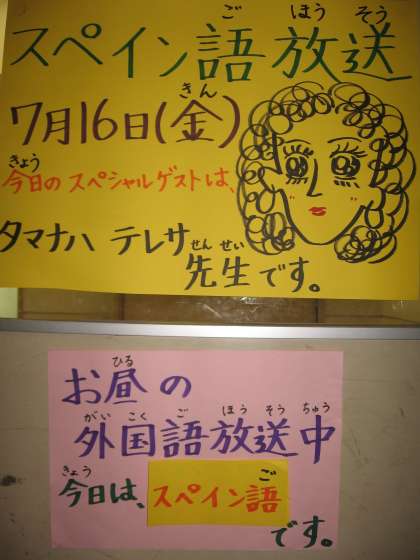 スペイン語放送
ご ほう そう
7月16日(金)
きん
きょう
今日のスペシャルゲストは、
タマナハ テレサ
せん せい
先生です。
ひる
お昼の
がい こく ご ほう そう ちゅう
外国語放送中
きょう
今日は、スペイン語
ご
です。